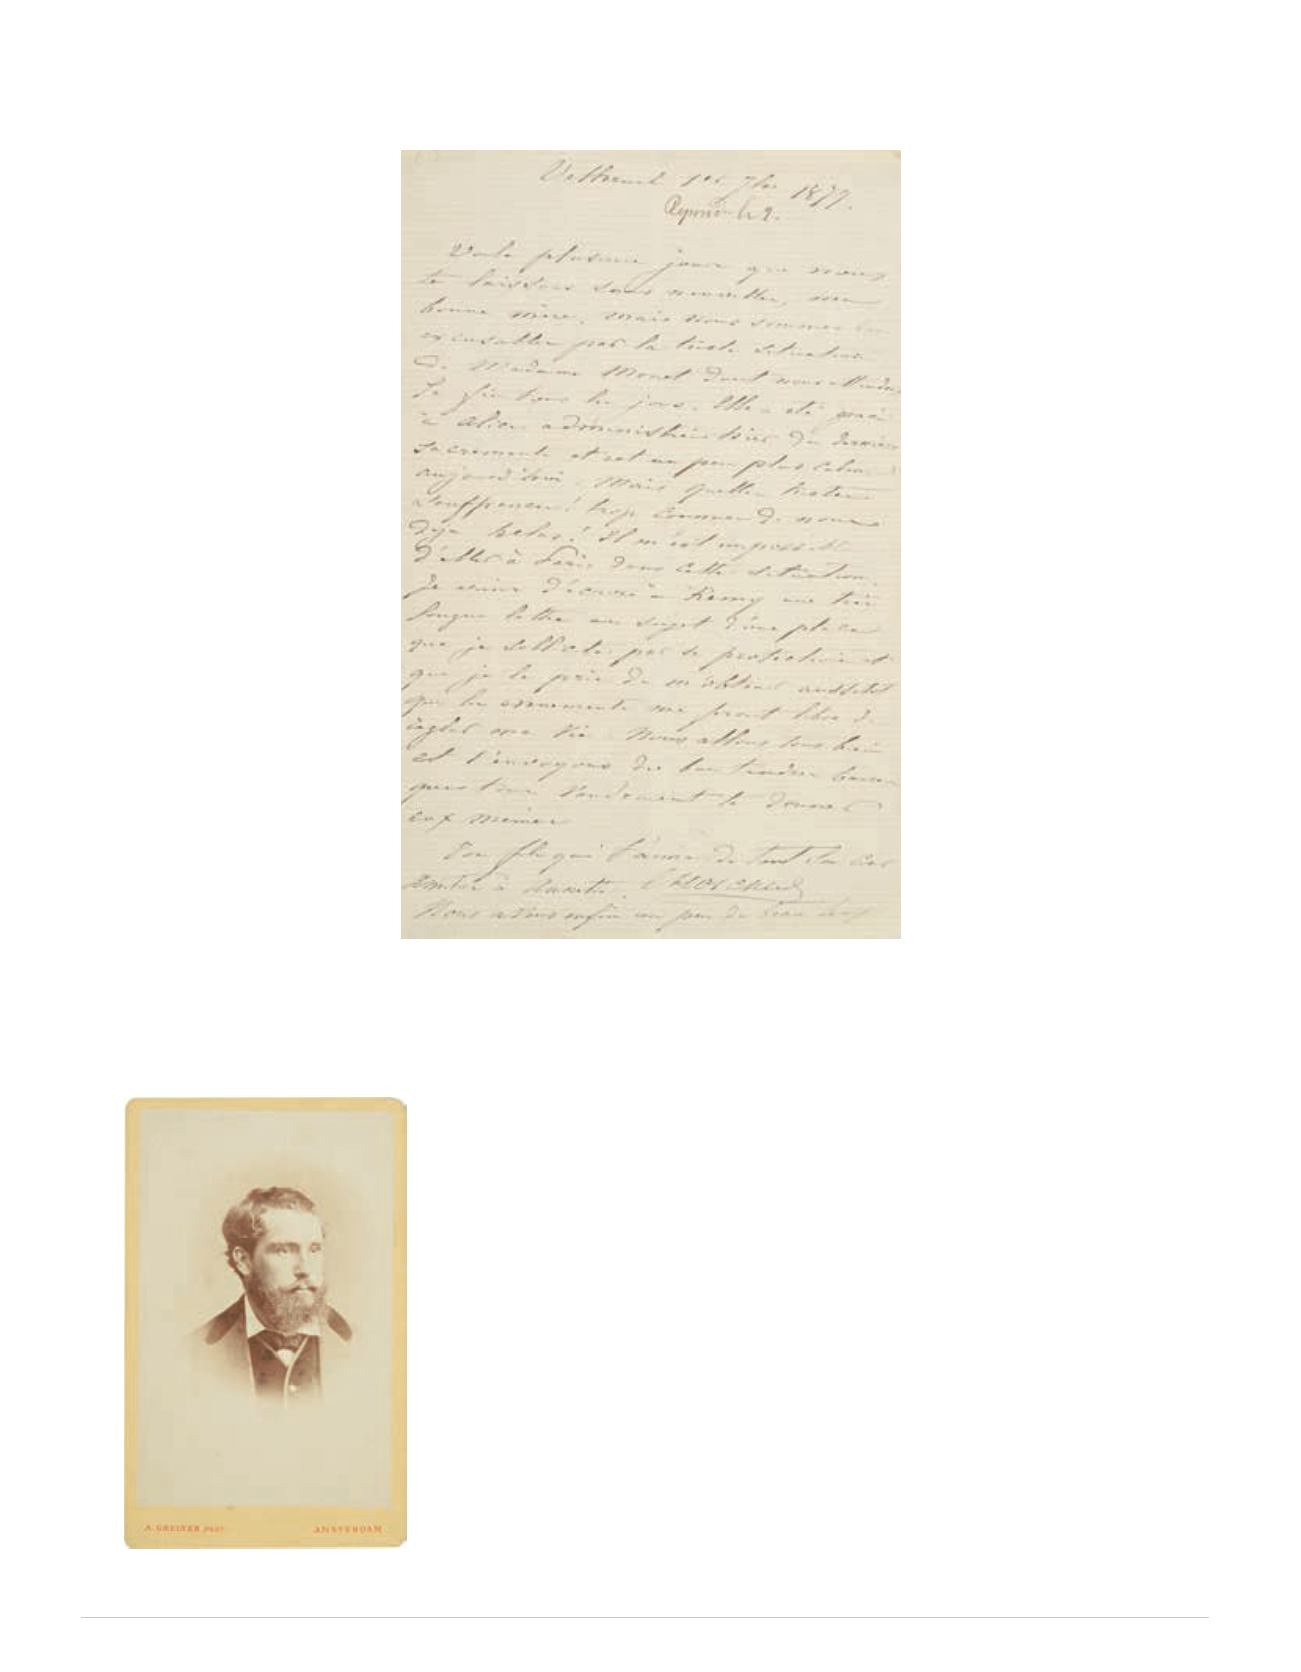 Vetheuil 1er 7bre 1877.
Repondu le 2.
Voila plusieurs jours que nous
te laissons sans nouvelles, ma
bonne mère, mais nous sommes
excusables par la triste situation
de Madame Monet dont nous attendons
la fin tous les jours. Elle a été grace
à Alice administrée hier des derniers
sacrements et est un peu plus calme
aujourd'hui. Mais quelles tristes
souffrances! trop connues de nous
deja helas! Il m'est impossible
d'aller à Paris dans cette situation.
Je viens d'écrire à Remy une très
longue lettre au sujet d'une place
que je sollicite par sa protection et
que je le prie de m'obtenir aussitot
que les evenements me feront libre de
regler ma vie. Nous allons tous bien
et t'envoyons de bien tendres baisers
que tous voudraient te donner
eux memes
Ton fils qui t'aime de tout son cœur
amitiés à E Hoschedé
Nous avons enfin un peu de beau
A. GREINER PHOT. AMSTERDAM